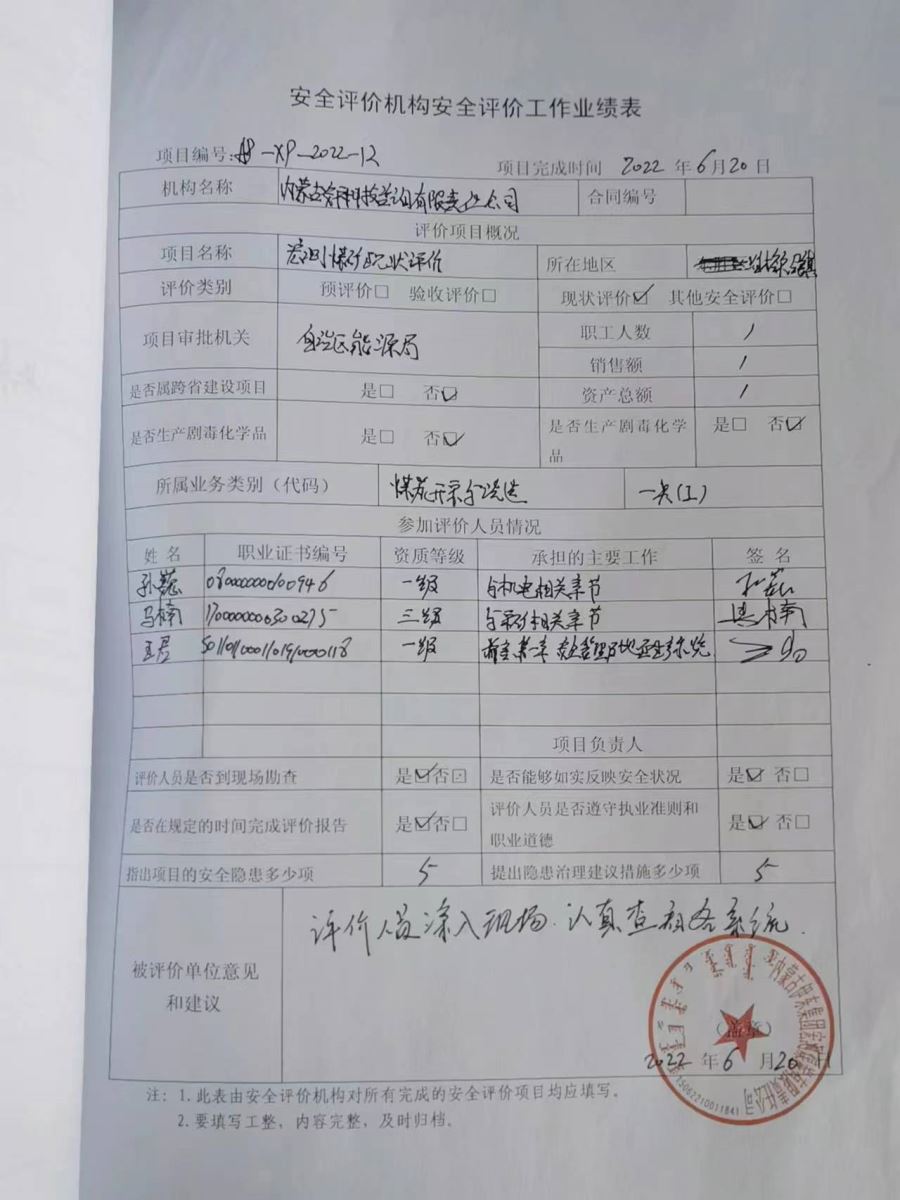 安全评价机构安全评价工作业绩表
项目编号: -XP-2022-12 项目完成时间 2022 年 6 月 20 日
机构名称 内蒙古 科技咨询有限责任公司 合同编号
评价项目概况
项目名称 宏测煤矿现状评价 所在地区
评价类别 预评价□ 验收评价□ 现状评价☑ 其他安全评价□
项目审批机关 自治区能源局 职工人数 /
销售额 /
是否属跨省建设项目 是□ 否☑ 资产总额 /
是否生产剧毒化学品 是□ 否☑ 是否生产剧毒化学品 是□ 否☑
所属业务类别（代码） 煤炭开采与洗选 一类(1)
参加评价人员情况
姓名 职业证书编号 资质等级 承担的主要工作 签名
孙巍 0800000000100946 一级 与机电相关章节 孙巍
马楠 三级 相关章节 马楠
王君 一级 前言 第一章 王君
项目负责人
评价人员是否到现场勘查 是☑否□ 是否能够如实反映安全状况 是☑ 否□
是否在规定的时间完成评价报告 是☑否□ 评价人员是否遵守执业准则和职业道德 是☑ 否□
指出项目的安全隐患多少项 5 提出隐患治理建议措施多少项 5
被评价单位意见和建议 评价人员深入现场.认真查看各系统.
（盖章）
2022 年 6 月 20 日
注：1.此表由安全评价机构对所有完成的安全评价项目均应填写。
2.要填写工整，内容完整，及时归档。